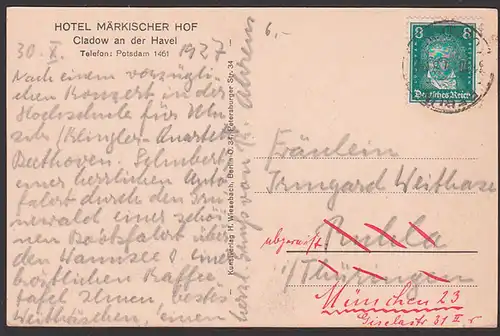 HOTEL MÄRKISCHER HOF
Cladow an der Havel
Telefon: Potsdam 1461
30. X. 1927
Nach einem vorzügli-
chen Konzert in der
Hochschule für Mu-
sik (Klingler-Quartett
Beethoven, Schubert
einer herrlichen Auto-
fahrt durch den Gru-
newald einer schö-
nen Bootsfahrt über
den Wannsee u. einer
köstlichen Kaffee
tafel Ihnen, bestes
Weithäschen, einen
herzl. Gruss von Ahrens
Kunstverlag H. Wiesebach, Berlin O. 34, Petersburger Str. 34
6,-
8 8
Deutsches Reich
Fräulein
Irmgard Weithase
abgereist Ruhla
i/Thüringen
München 23
Giselastr. 31 II r